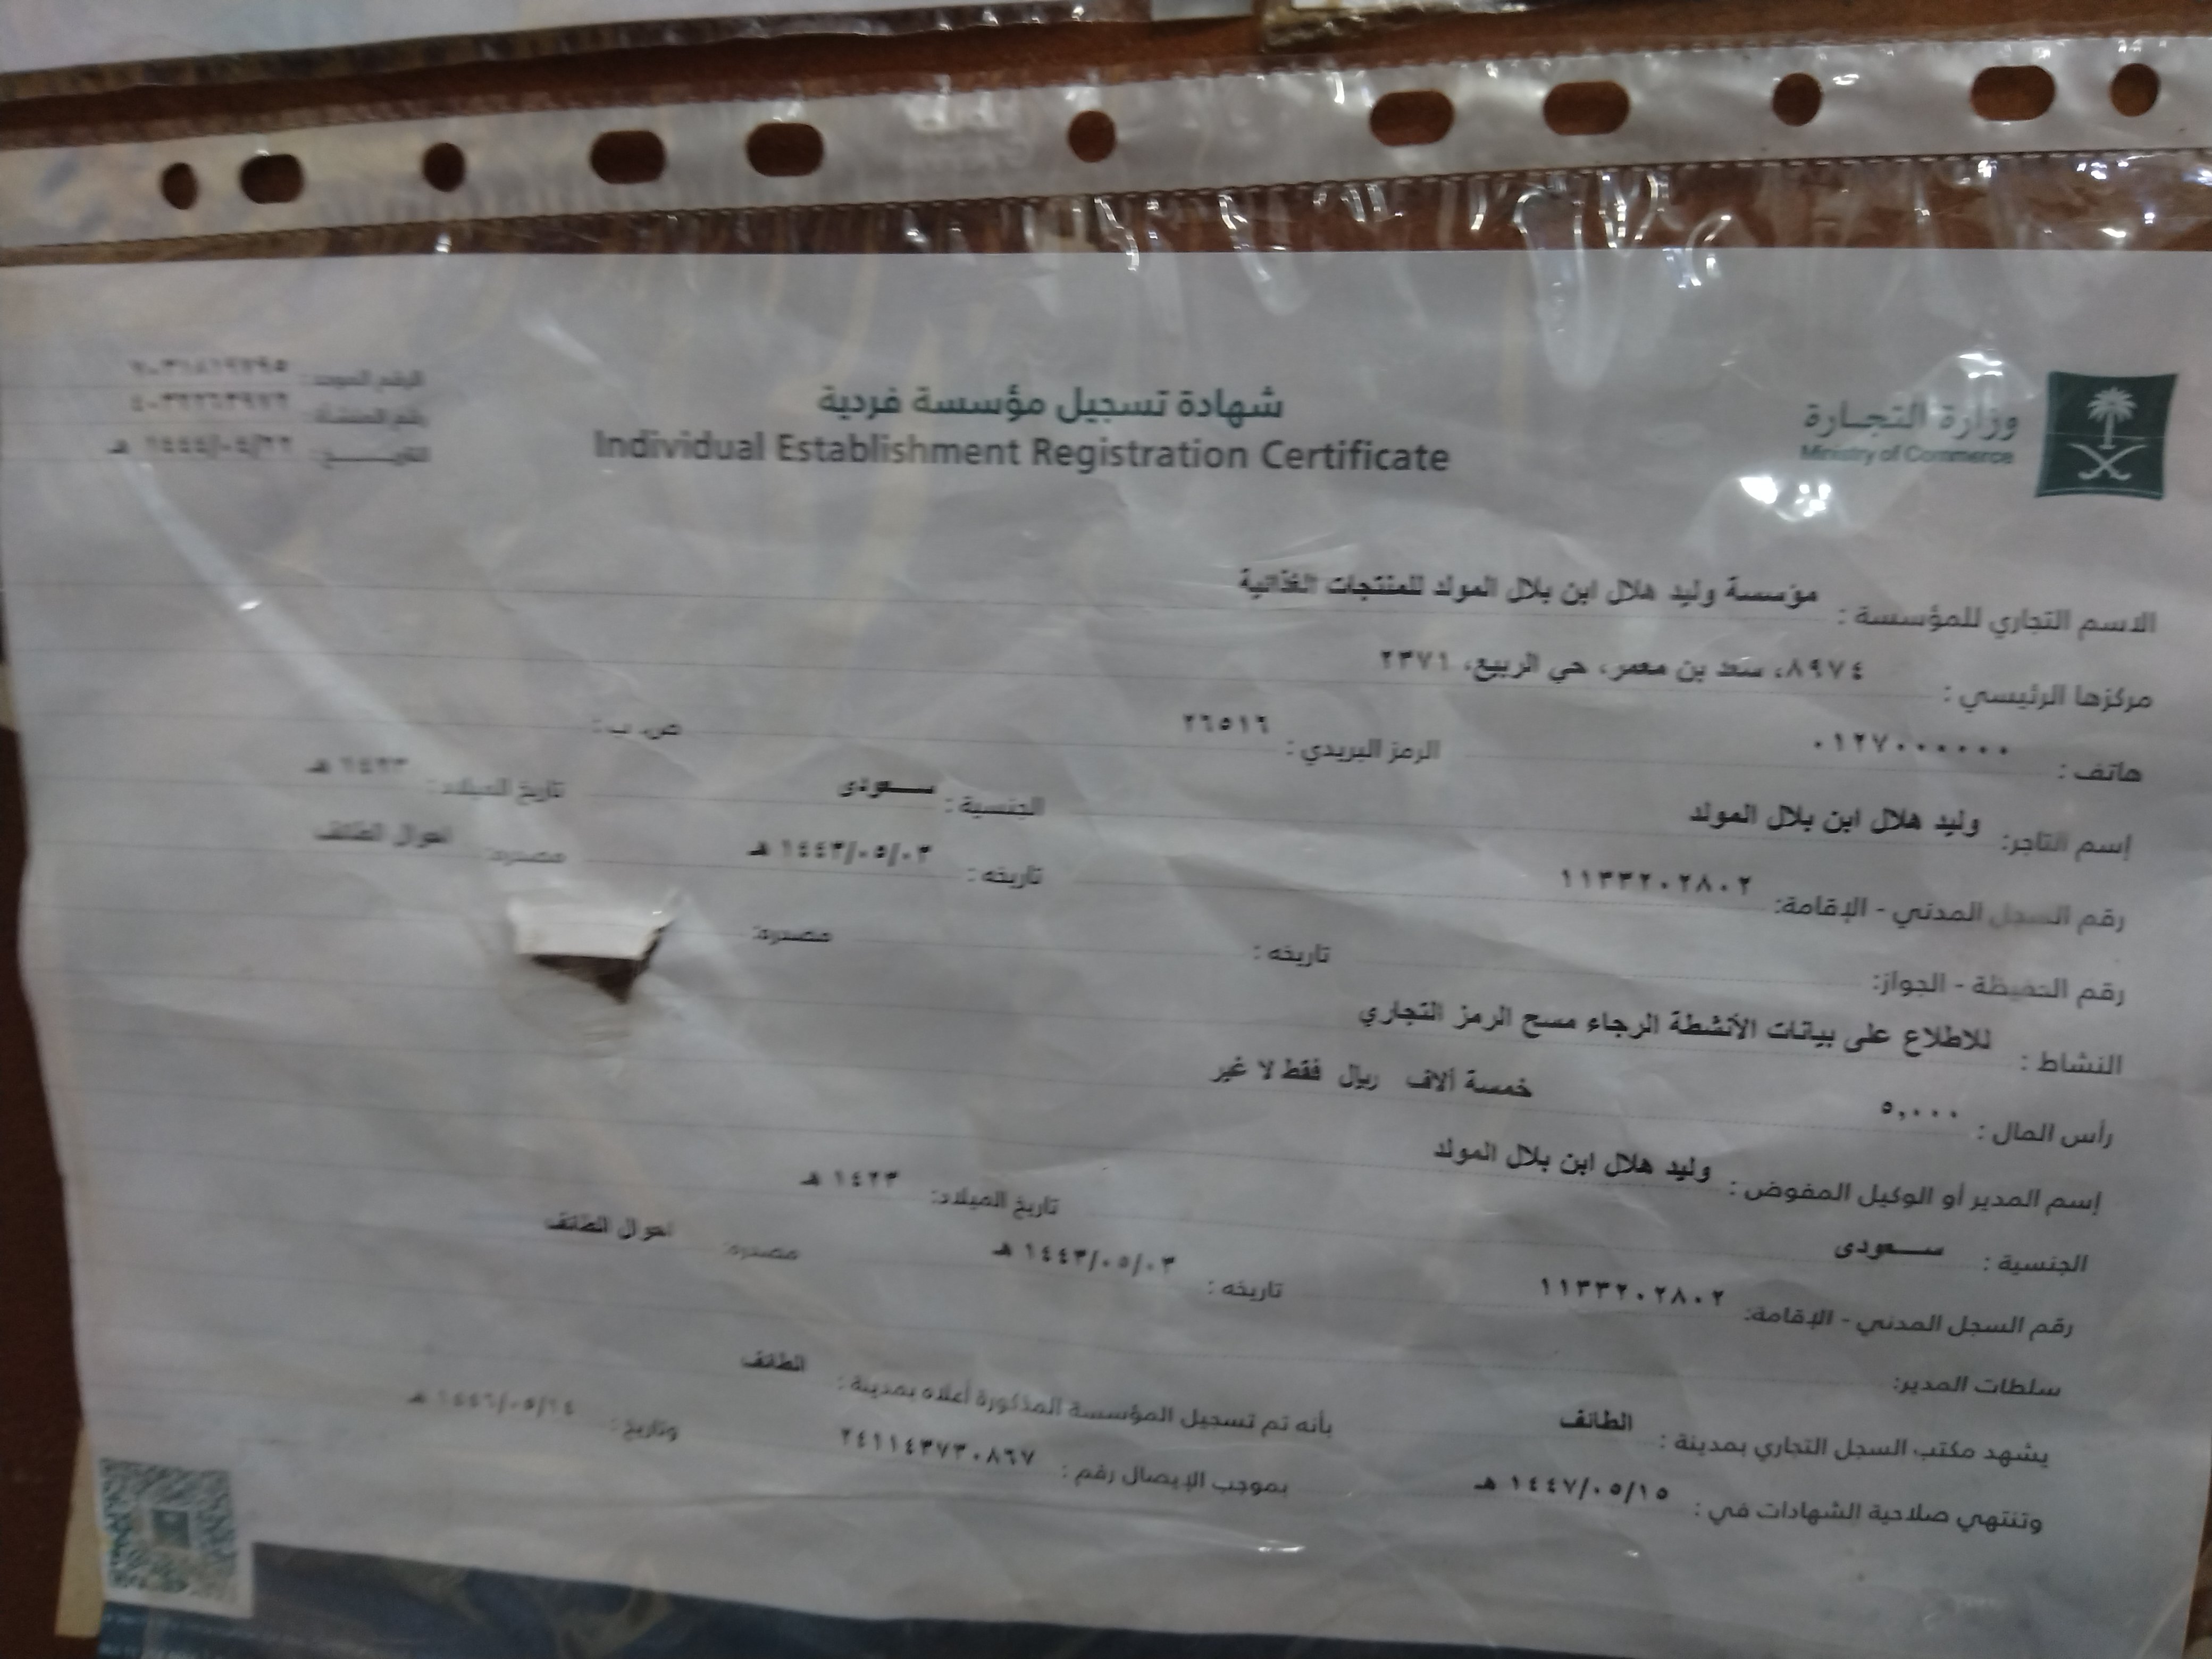 وزارة التجارة
Ministry of Commerce
شهادة تسجيل مؤسسة فردية
Individual Establishment Registration Certificate
الرقم الموحد:
رقم المنشأة:
التاريخ: ١٤٤٤/٠٤/٢٢ هـ
الاسم التجاري للمؤسسة : مؤسسة وليد هلال ابن بلال المولد للمنتجات الغذائية
مركزها الرئيسي : ٨٩٧٤، سعد بن معمر، حي الربيع، ٢٣٧١
هاتف : ٠١٢٧٠٠٠٠٠٠ الرمز البريدي : ٢٦٥١٦ ص. ب :
إسم التاجر: وليد هلال ابن بلال المولد الجنسية : سعودى تاريخ الميلاد: ١٤٢٣ هـ
رقم السجل المدني - الإقامة: ١١٣٣٢٠٢٨٠٢ تاريخه : ١٤٤٣/٠٥/٠٣ هـ مصدره: احوال الطائف
رقم الحفيظة - الجواز: تاريخه : مصدره:
النشاط : للاطلاع على بيانات الأنشطة الرجاء مسح الرمز التجاري
رأس المال : ٥,٠٠٠ خمسة ألاف ريال فقط لا غير
إسم المدير أو الوكيل المفوض : وليد هلال ابن بلال المولد
الجنسية : سعودى تاريخ الميلاد: ١٤٢٣ هـ
رقم السجل المدني - الإقامة: ١١٣٣٢٠٢٨٠٢ تاريخه : ١٤٤٣/٠٥/٠٣ هـ مصدره: احوال الطائف
سلطات المدير:
يشهد مكتب السجل التجاري بمدينة : الطائف بأنه تم تسجيل المؤسسة المذكورة أعلاه بمدينة : الطائف
وتنتهي صلاحية الشهادات في : ١٤٤٧/٠٥/١٥ هـ بموجب الإيصال رقم : ٢٤١١٤٣٧٣٠٨٦٧ وتاريخ : ١٤٤٦/٠٥/١٤ هـ